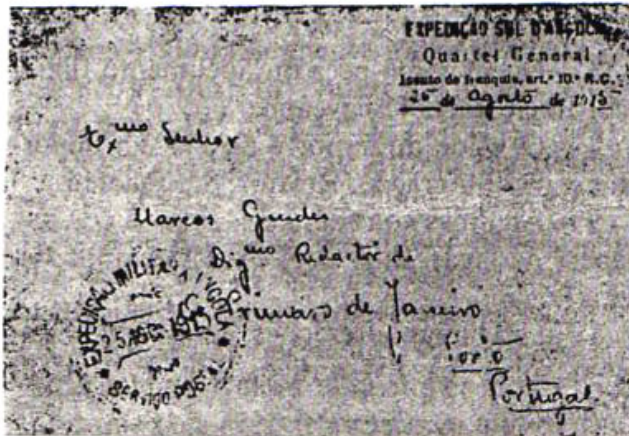 EXPEDIÇÃO SUL D'ANGOLA
Quartel General
Isento de franquia, art.º 10.º R.G.
25 de Agosto de 1915
Exmo Senhor
Marcos Guedes
Digmo Redactor de
Primeiro de Janeiro
Porto
Portugal
EXPEDIÇÃO MILITAR A ANGOLA
25 AGO 1915
SERVIÇO POSTAL